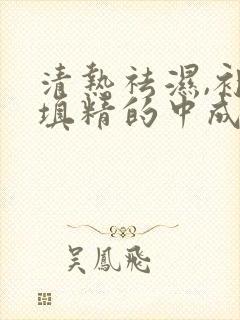 清熱祛濕,補
填精的中成
吳鳳飛